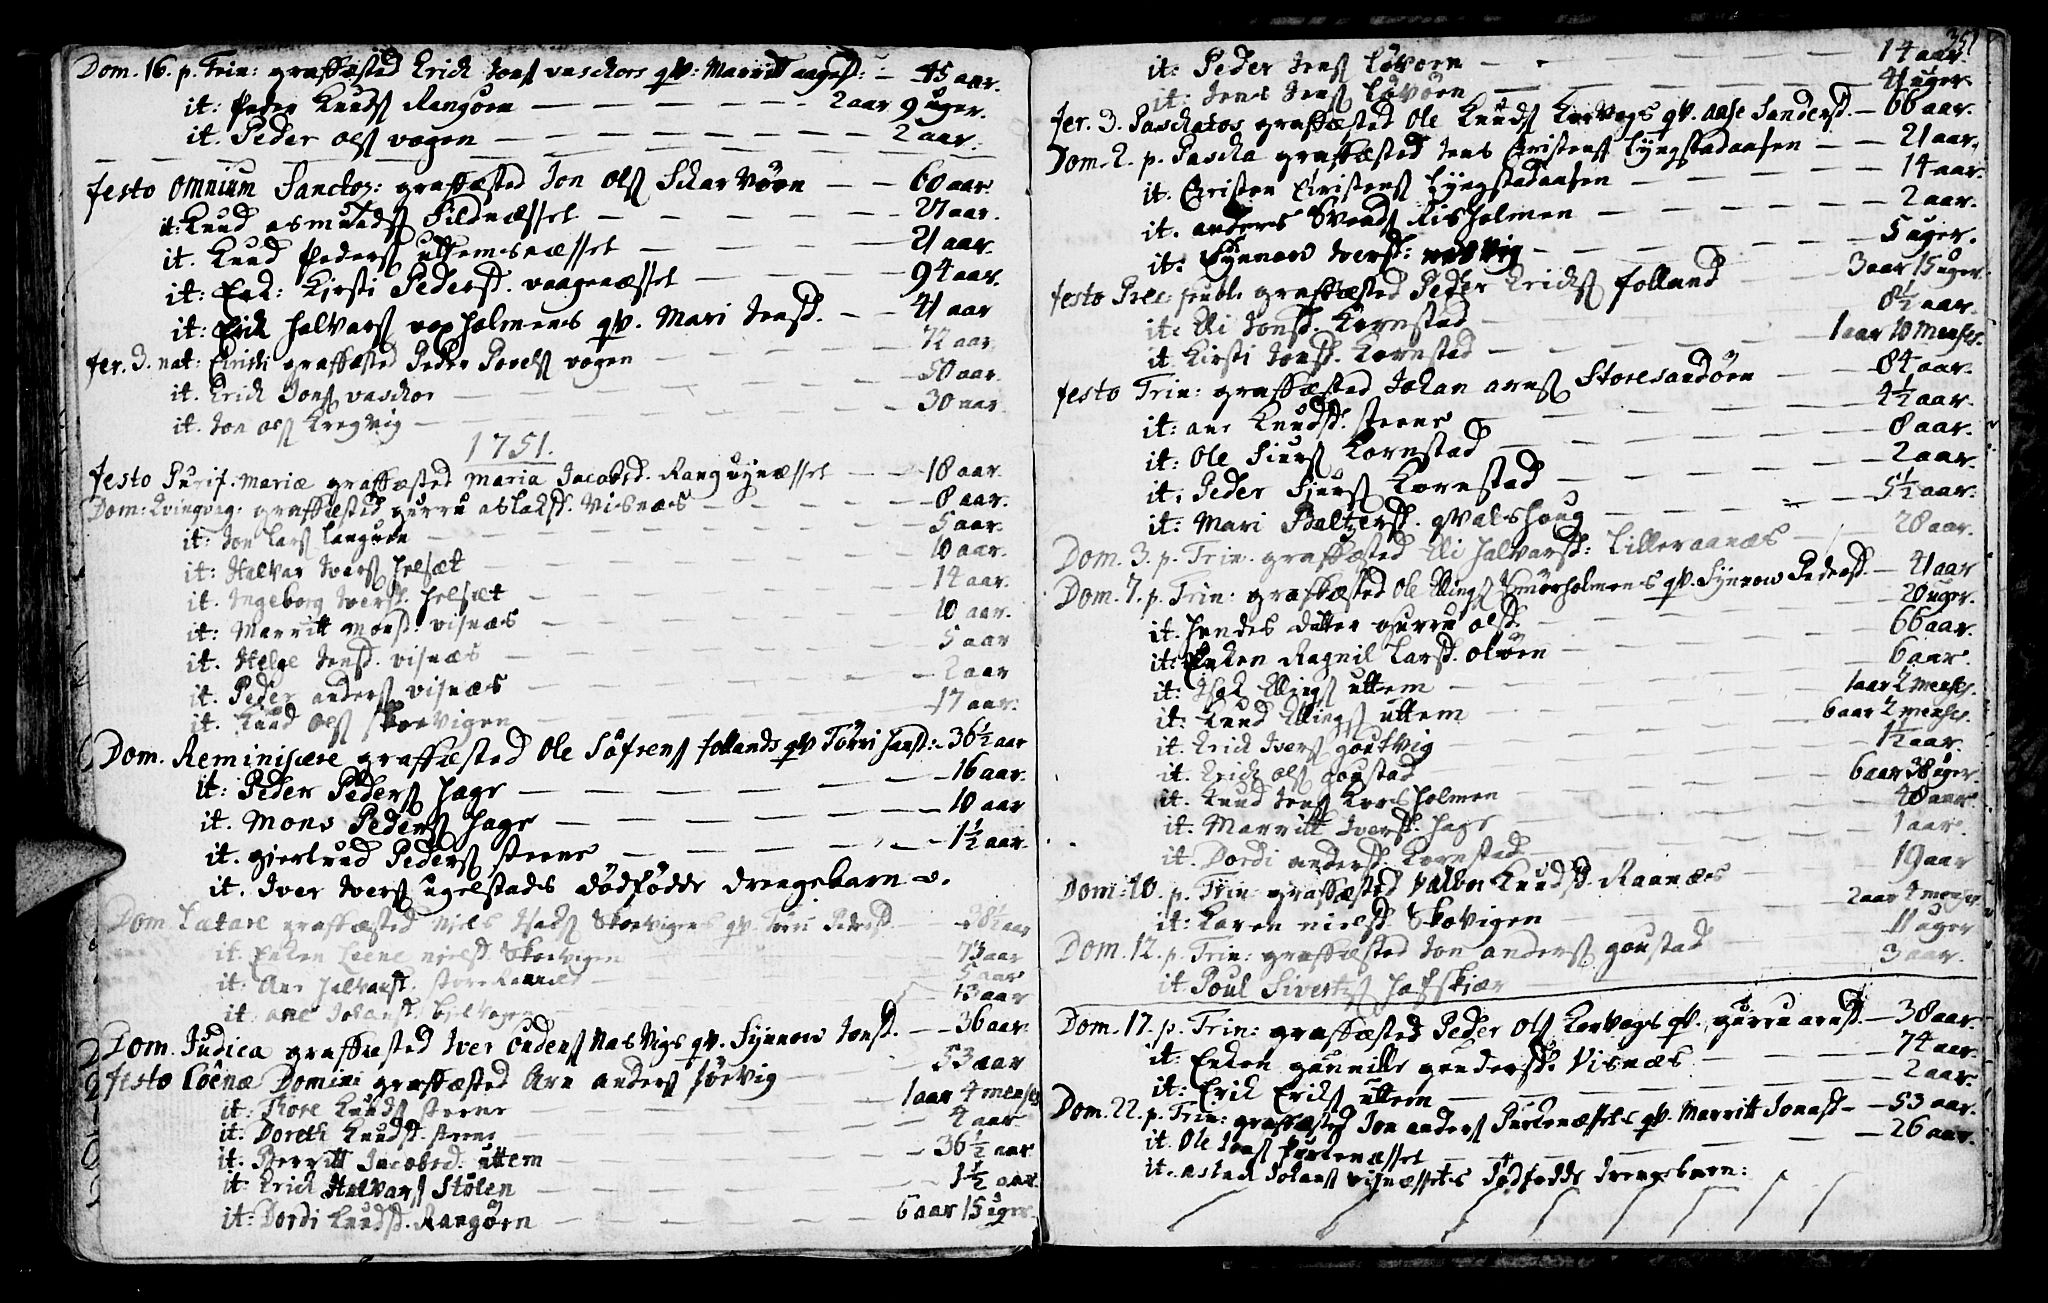 Dom. 16. p. Trin: graffæsted Erich Jons vaschors qv: Marritt aagesd: — 45 aar.
it: Peder Knuds Rangøen — 2 aar 9 uger.
it. Peder ols vogen — 2 aar.
festo omnium Sanctor: graffæsted Jon ols Skarvøen — 60 aar.
it: Knud asmunds Sildnæsset — 27 aar.
it. Knud Peders uttemsnæsset — 21 aar.
it: Enk: Kirsti Pedersd. vaagenæsset — 94 aar.
it: Erik Halvars voxholmens qv. Mari Jensd. — 41 aar
fer. 3. nat: Christi graffæsted Peder Povels vogen — 72 aar
it. Erich Jons vaschor — 50 aar.
it. Jon ols Kregvig — 30 aar
1751.
festo Purif: mariæ graffæsted maria Jacobsd. Ranguynæsset — 18 aar.
Dom: Kvingvag: graffæsted gurru aslaksd. Visnæs — 8 aar.
it: Jon Lars Langøen — 5 aar.
it: Halvar Ivers Helsæt — 10 aar.
it. Ingeborg Iversd. Helsæt — 14 aar.
it: Marritt monsd: visnæs — 10 aar.
it. Helge Jensd. visnæs — 5 aar
it. Peder anders visnæs — 2 aar
it. Knud ols Skovigen — 17 aar.
Dom. Reminiscere graffæsted Ole Søfrens follands qv Torri Hansd: — 36½ aar
it: Peder Peders Hage — 16 aar.
it. Mons Peders Hage — 10 aar
it. gjertrud Peders steene — 1½ aar.
it. Iver Ivers ugelstads dødfødde drengebarn
Dom Lætare graffæsted Niels Isaks Skovigens qv. Torri Pedersd — 38½ aar
it. Enken Leene nielsd. Skovigen — 73 aar
it: Ane Halvarsd. store Raanæs — 5 aar
it. ane Johansd. — 13 aar
Dom. Judica graffæsted Iver oudens Nasvigs qv. Synnow Jonsd. — 36 aar.
festo Coenæ Domini graffæsted Arn anders Sørvig — 53 aar
it: Tore Knuds steene — 1 aar 4 menses
it: Doreth Knudsd. steene — 4 aar.
it. Berritt Jacobsd. uttem — 36½ aar
it: Erich Halvars Stølen — 1½ aar
it: Dordi Knudsd. Rangøen — 6 aar 15 uger
351
it: Peder Jens Løvøen — 14 aar.
it: Jens Jens Løvøen — 41 uger.
fer. 3. Paschatos graffæsted Ole Knuds Korvogs qv. aase Sandersd. — 66 aar.
Dom. 2. p. Pascha graffæsted Jens Christens Lyngstadaasen — 21 aar.
it. Christen Christens Lyngstadaasen — 14 aar.
it. anders Svends Risholmen — 2 aar.
it: Synnow Iversd: — 5 uger.
festo Prec: publ: graffæsted Peder Erichs folland — 3 aar 15 uger
it: Eli Jonsd. Kornstad — 8½ aar.
it Kirsti Jonsd. Kornstad — 1 aar 10 menses.
festo Trin: graffæsted Johan arns Storesandøen — 84 aar.
it: ane Knudsd. steene — 4½ aar.
it: Ole Siurs Kornstad — 8 aar.
it. Peder Sjurs Kornstad — 2 aar.
it: Mari Baltzersd. qvalshoug — 5½ aar.
Dom. 3. p. Trin. graffæsted Eli Halvarsd: Lilleraanæs — 28 aar.
Dom. 7. p. Trin: graffæsted Ole Ellings Smørholmens qv. Synnow Pedersd. — 41 aar
it. Hendes datter gurru olsd. — 20 uger.
it: Enken Ragnil Larsd. oløen — 66 aar.
it: Isak Ellings uttem — 6 aar.
it: Knud Ellings uttem — 1 aar 2 menses.
it. Erich Ivers goutvig — 6 aar 2 menses.
it. Erich ols goustad — 1½ aar.
it. Knud Jens Korsholmen — 6 aar 38 uger.
it. Marritt Iversd. Hage — 48 aar.
it. Dordi andersd. Kornstad — 1 aar.
Dom: 10. p. Trin: graffæsted Valbor Knudsd. Raanæs — 19 aar
it: Karen nielsd. Skovigen — 2 aar 4 menses
Dom. 12. p. Trin: graffæsted Jon anders goustad — 11 uger
it Poul Siverts Hafskjær — 3 aar.
Dom. 17. p. Trin: graffæsted Peder ols Korvogs qv. gurru arnsd. — 38 aar.
it: Enken gunnille gundersd. Visnæs — 74 aar.
it: Erik Eriks uttem — 2 aar.
Dom. 22. p. Trin: graffæsted Jon anders Purkenæssets qv. Marritt Jonasd. — 53 aar.
it. Ole Jons Purkenæsset — 26 aar.
it. aslack Johans visnæssets dødfødde drengebarn: